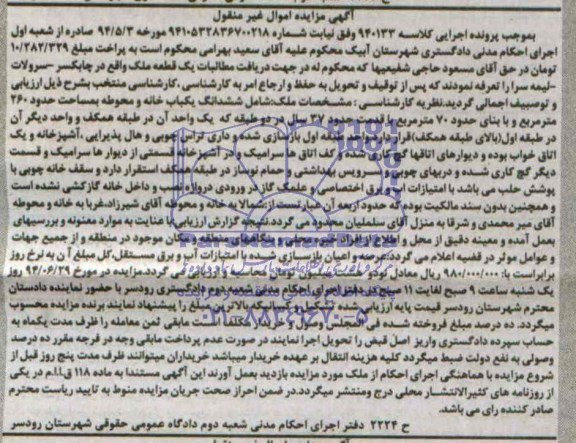 آگهی مزایده اموال غیر منقول
بموجب پرونده اجرایی کلاسه ۹۴۰۱۳۳ اجرایی وفق نیابت شماره ۹۴۱۰۵۳۲۸۳۶۷۰۰۲۱۸ مورخه ۹۴/۵/۳ صادره از شعبه اول
اجرای احکام مدنی دادگستری شهرستان آبیک محکوم علیه آقای سعید بهرامی محکوم است به پراخت مبلغ ۱۰/۳۸۲/۳۲۹
تومان در حق آقای مسعود حاجی شفیعیها که محکوم له در جهت دریافت مطالبات یک قطعه ملک واقع در چابکسر -سرولات
-لیمه سرا را تعرفه نمودند که پس از توقیف و تحویل به حفظ و ارجاع امر به کارشناسی ،کارشناسی منتخب بشرح ذیل ارزیابی
و توصیف اجمالی گردید.نظریه کارشناسی : مشخصات ملک:شامل ششدانگ یکباب خانه و محوطه بمساحت حدود ۲۶۰
مترمربع و با بنای حدود ۷۰ مترمربع با قدمت حدود ۳۷ سال در دو طبقه که یک واحد آن در طبقه همکف و واحد دیگر آن
در طبقه اول(بالای طبقه همکف)قرار دارد واحد طبقه اول بازسازی شده و داری تراس چوبی و هال پذیرایی ،آشپزخانه و یک
اتاق خواب بوده و دیوارهای اتاقها گچ کاری شده و کف اتاق ها سرامیک و در آشپزخانه قسمتی از دیوار ها سرامیک و قسمت
دیگر گچ کاری شده و دربهای چوبی و سرویس بهداشتی و حمام نوساز در طبقه همکف استقرار دارد و سقف خانه چوبی با
پوشش حلب می باشد با امتیازات آب و برق اختصاصی و علمک گاز در ورودی دروازه نصب و داخل خانه گازکشی نشده است
و همچنین بدون سند مالکیت بوده که حدود اربعه آن عبارتست از:شمالا به خانه و محوطه آقای شیرزاد،غربا به خانه و محوطه
آقای میر محمدی و شرقا به منزل آقای سلملیان محدود می گردد.نتیجه گزارش ارزیابی:با عنایت به موارد معنونه و بررسیهای
بعمل آمده و معینه دقیق از محل و اطلاع از افراد خبره محلی و بنگاههای منطقه و مکان موجود در منطقه و از جمیع جهات
و عوامل موثر در قضیه اعلام می گردد:عرصه و اعیان بازسازی شده با امتیازات آب و برق مستقل،کل مبلغ آن به نرخ روز
برابراست با: ۹۸۰/۰۰۰/۰۰۰ ریال معادل گردد.مزایده در مورخ ۹۴/۰۶/۲۹ روز
یک شنبه ساعت ۹ صبح لغایت ۱۱ صبح در دفتر اجرای احکام مدنی شعبه دوم دادگستری رودسر با حضور نماینده دادستان
محترم شهرستان رودسر قیمت پایه ارزیابی بالاترین مبلغ را پیشنهاد نمایند برنده مزایده محسوب
میگردد. ده درصد مبلغ فروخته شده فی المجلس وصول و خریدار مکلف است مابقی ثمن معامله را ظرف مدت یکماه به
حساب سپرده دادگستری واریز اصل قبض را تحویل اجرا نمایند در صورت عدم پرداخت مابقی وجه در فرجه مقرر ده درصد
وصولی به نفع دولت ضبط میگردد کلیه هزینه انتقال بر عهده خریدار میباشد خریداران میتوانند ظرف مدت پنج روز قبل از
شروع مزایده با هماهنگی اجرای احکام از ملک مورد مزایده بازدید بعمل آورند این آگهی مستندا به ماده ۱۱۸ ق.ا.ا.م در یکی
از روزنامه های کثیرالانتشار محلی درج ومنتشر میگردد.در ضمن احراز صحت جریان مزایده منوط به تایید ریاست محترم
صادر کننده رای می باشد.
ح ۲۲۲۴ دفتر اجرای احکام مدنی شعبه دوم دادگاه عمومی حقوقی شهرستان رودسر